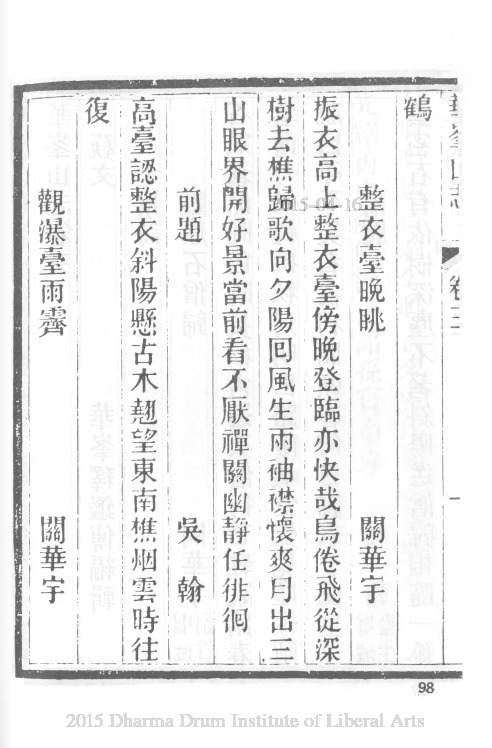 華峯山志 卷三 一
鶴
整衣臺晚眺 關華宇
振衣高上整衣臺傍晚登臨亦快哉鳥倦飛從深
樹去樵歸歌向夕陽囘風生兩袖襟懷爽月出三
山眼界開好景當前看不厭禪關幽静任徘徊
前題 吳翰
高臺認整衣斜陽懸古木翹望東南樵烟雲時往
復
觀瀑臺雨霽 關華宇
98
2015 Dharma Drum Institute of Liberal Arts